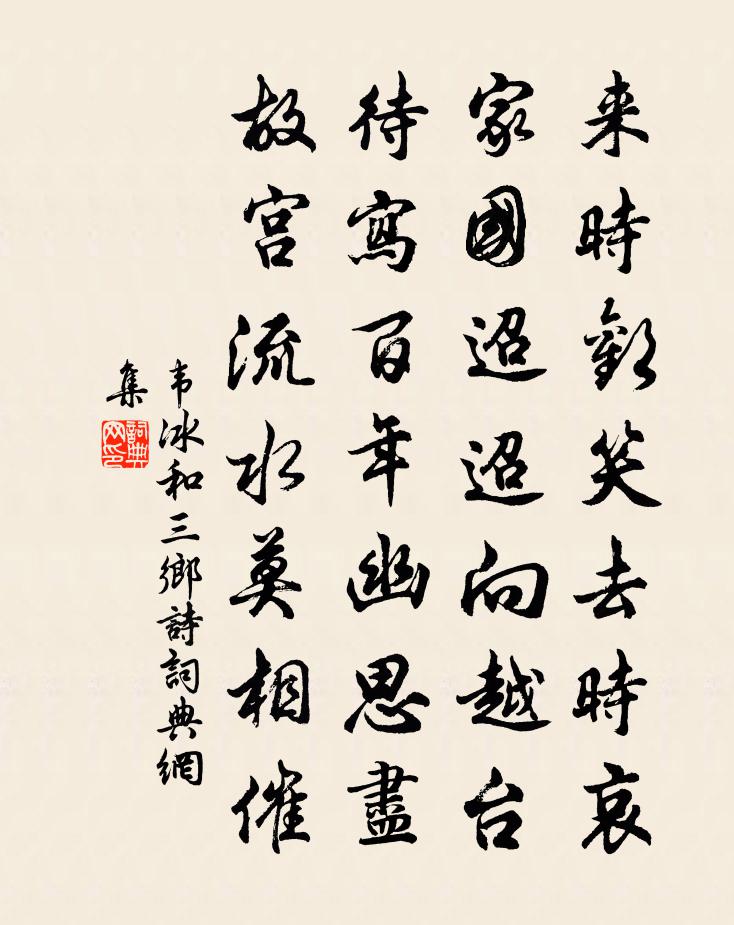 来時歡笑去時哀
家國迢迢向越台
待寫百年幽思盡
故宫流水莫相催
韦冰和三鄉詩詞典網
集
詞典
网印